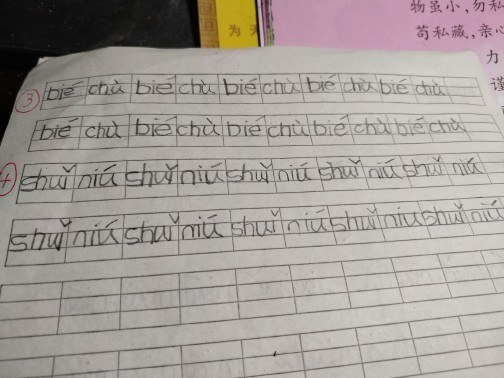 物虽小,勿私
苟私藏,亲心
力
谨
为
③ bié chù bié chù bié chù bié chù bié chù
bié chù bié chù bié chù bié chù bié chù
④ shuǐ niú shuǐ niú shuǐ niú shuǐ niú shuǐ niú
shuǐ niú shuǐ niú shuǐ niú shuǐ niu shuǐ niú